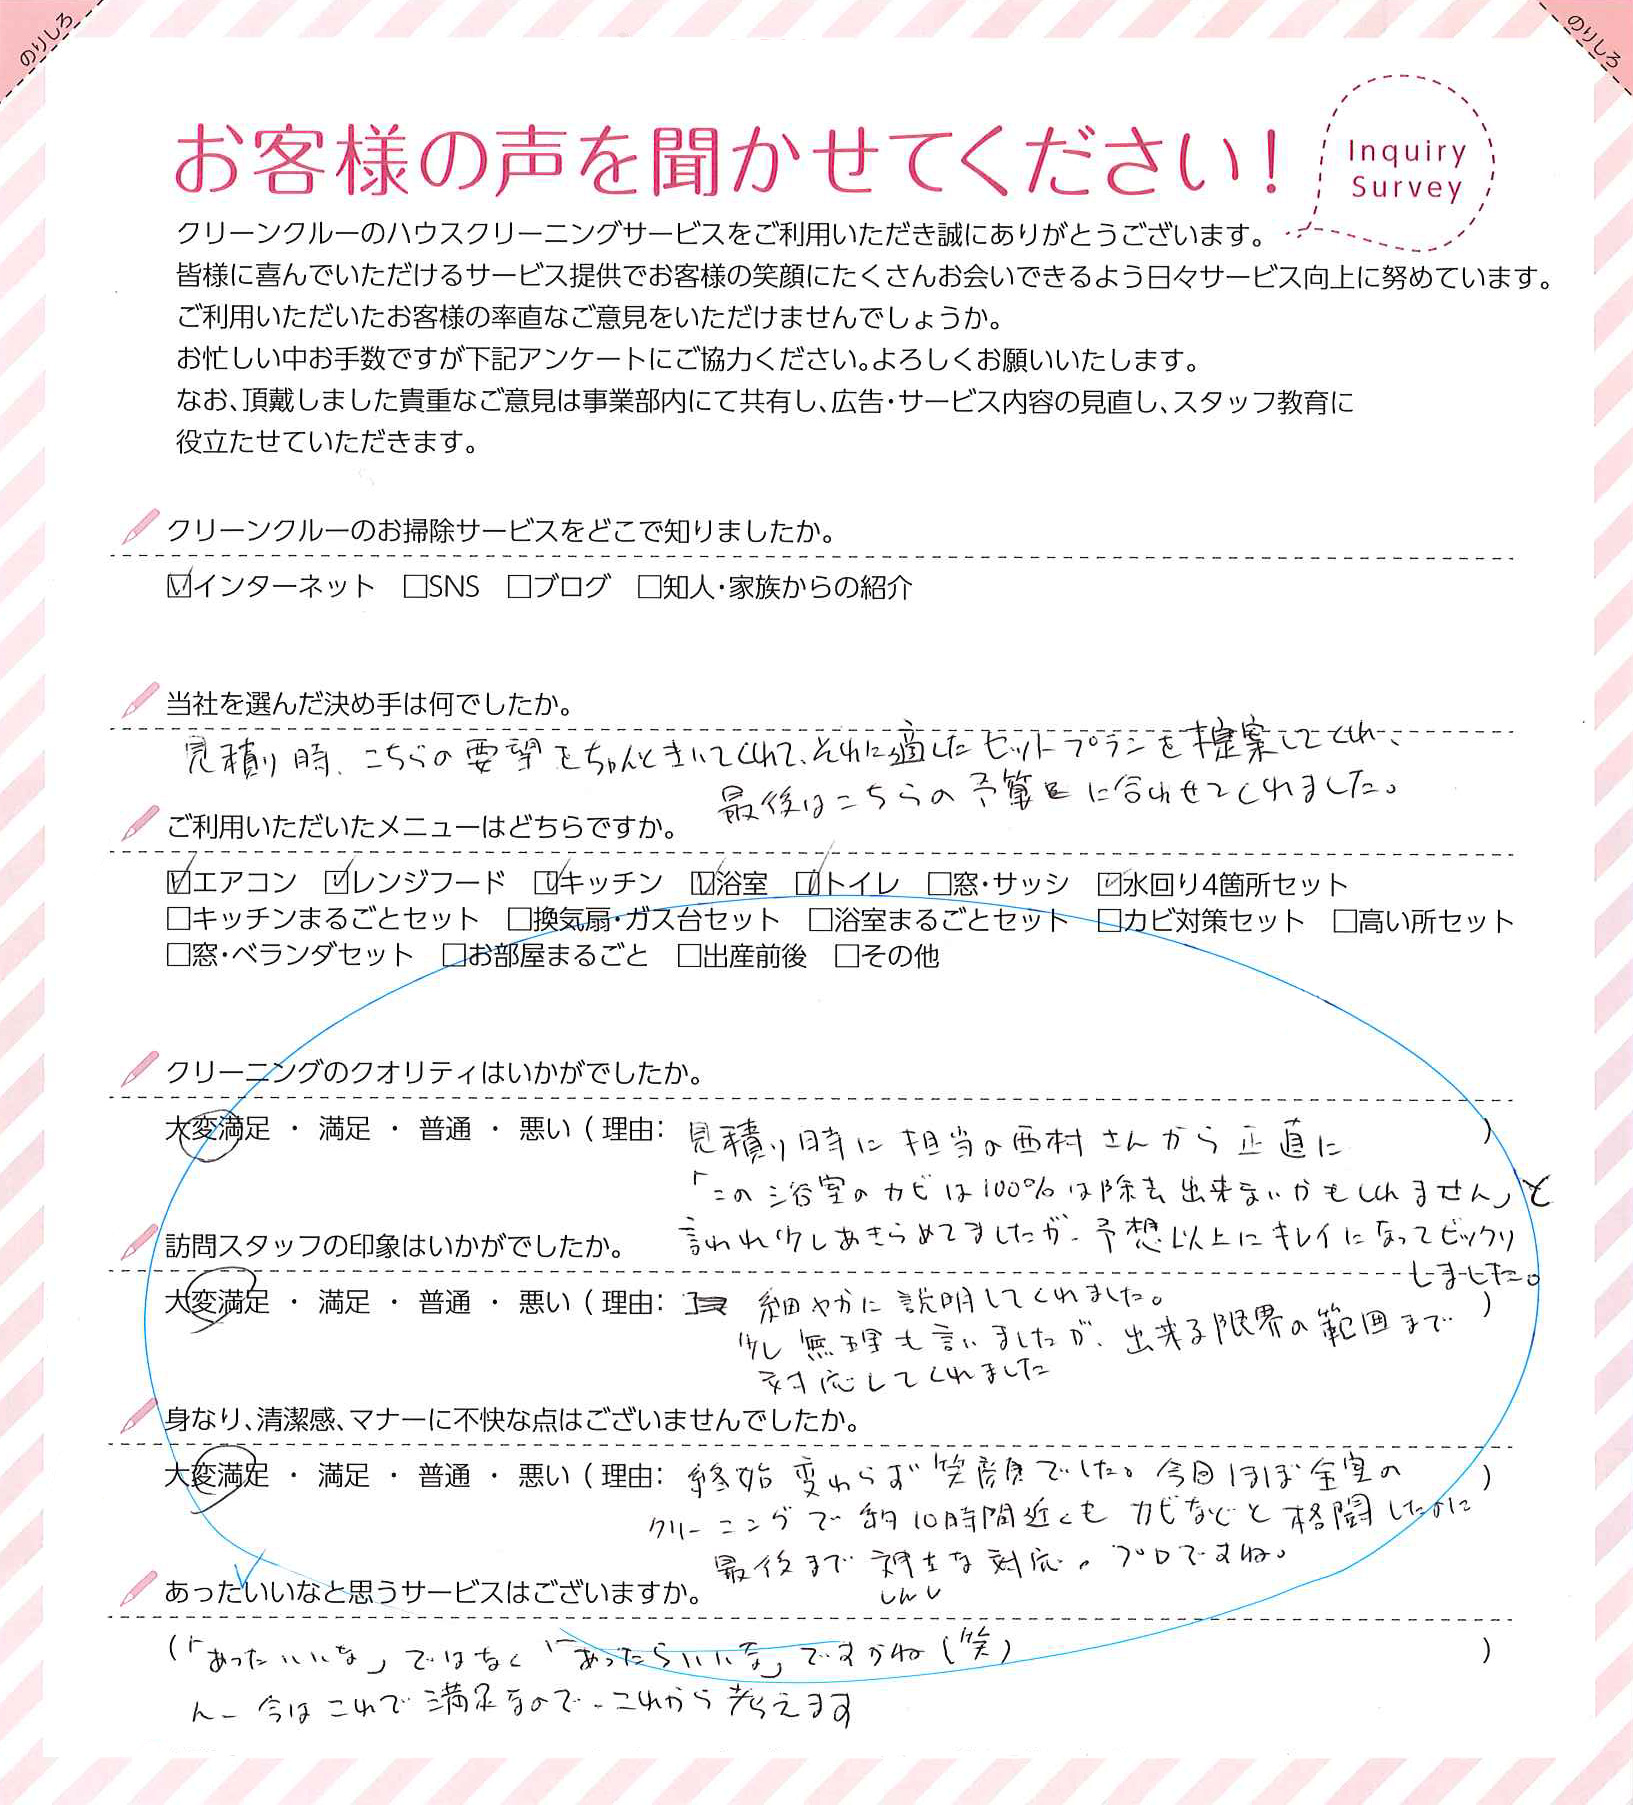 のりしろ
のりしろ
お客様の声を聞かせてください!
Inquiry
Survey
クリーンクルーのハウスクリーニングサービスをご利用いただき誠にありがとうございます。
皆様に喜んでいただけるサービス提供でお客様の笑顔にたくさんお会いできるよう日々サービス向上に努めています。
ご利用いただいたお客様の率直なご意見をいただけませんでしょうか。
お忙しい中お手数ですが下記アンケートにご協力ください。よろしくお願いいたします。
なお、頂戴しました貴重なご意見は事業部内にて共有し、広告・サービス内容の見直し、スタッフ教育に
役立たせていただきます。
クリーンクルーのお掃除サービスをどこで知りましたか。
☑インターネット □SNS □ブログ □知人・家族からの紹介
当社を選んだ決め手は何でしたか。
見積り時、こちらの要望をちゃんときいてくれて、それに適したセットプランを提案してくれ、
最後はこちらの予算に合わせてくれました。
ご利用いただいたメニューはどちらですか。
☑エアコン ☑レンジフード ☑キッチン ☑浴室 ☑トイレ □窓・サッシ ☑水回り4箇所セット
□キッチンまるごとセット □換気扇・ガス台セット □浴室まるごとセット □カビ対策セット □高い所セット
□窓・ベランダセット □お部屋まるごと □出産前後 □その他
クリーニングのクオリティはいかがでしたか。
大変満足 ・ 満足 ・ 普通 ・ 悪い ( 理由: 見積り時に担当の西村さんから正直に )
「この浴室のカビは100%は除去出来ないかもしれません」と
言われ少しあきらめてましたが、予想以上にキレイになってビックリ
しました。
訪問スタッフの印象はいかがでしたか。
大変満足 ・ 満足 ・ 普通 ・ 悪い ( 理由: 細やかに説明してくれました。 )
少し無理も言いましたが、出来る限界の範囲まで
対応してくれました
身なり、清潔感、マナーに不快な点はございませんでしたか。
大変満足 ・ 満足 ・ 普通 ・ 悪い ( 理由: 終始変わらず笑顔でした。今回ほぼ全室の )
クリーニングで約10時間近くもカビなどと格闘したのに
最後まで紳士な対応。プロですね。
しんし
あったいいなと思うサービスはございますか。
(「あったいいな」ではなく「あったらいいな」ですかね(笑) )
んー今はこれで満足なので、これから考えます